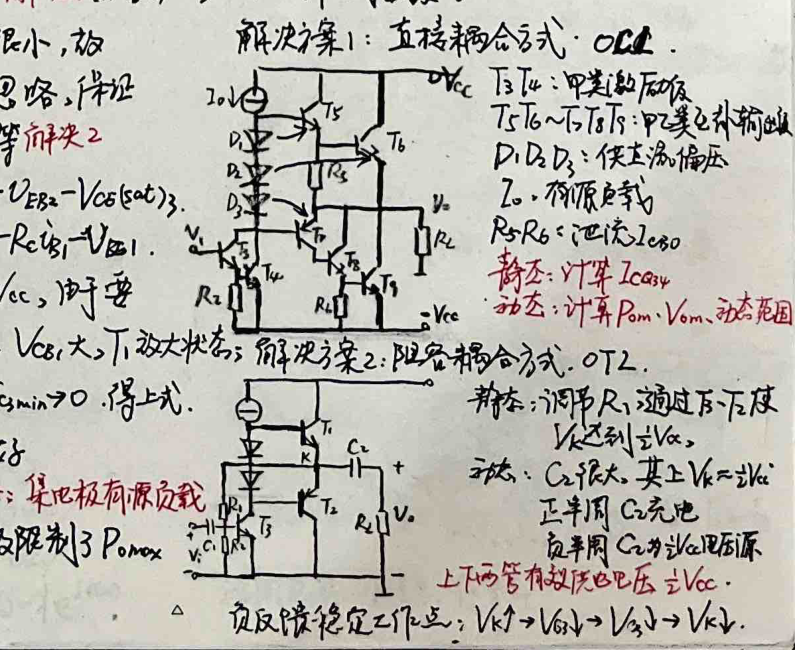 很小,故
忽略,保证
等 解决2
-VEB2-VCE(sat)3.
-RciB1-VBE1.
Vcc,由于要
VCB1大,T1放大状态;
c3min→0.得上式.
好
:集电极有源负载
限制了Pomax
解决方案1:直接耦合方式·OCL.
I0↓
T5
Vcc
D1
D2
D3
R5
T6
Vi
T3
T4
T7
T8
T9
Vo
RL
R2
R6
-Vcc
T3T4:甲类激励级
T5T6~T7T8T9:甲乙类互补输出级
D1D2D3:供直流偏压
I0:有源负载
R5R6:泄流ICBO
静态:计算ICQ34
动态:计算Pom、Vom、动态范围
解决方案2:阻容耦合方式.OTL.
T1
K
C2
+
T2
R1
T3
C1
R2
Vi
RL
Vo
-
静态:调节R1,通过T3~T2使
VK达到½Vcc。
动态:C2很大,其上VK≈½Vcc
正半周C2充电
负半周C2为½Vcc电压源
上下两管有效供电电压½Vcc.
△ 负反馈稳定工作点:VK↑→VB3↓→VK↓.